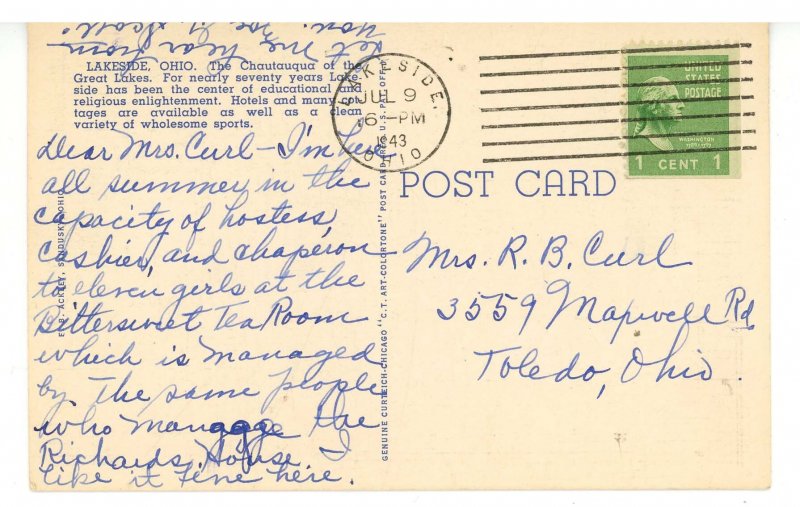 LAKESIDE, OHIO. The Chautauqua of the
Great Lakes. For nearly seventy years Lake-
side has been the center of educational and
religious enlightenment. Hotels and many cot-
tages are available as well as a clean
variety of wholesome sports.
Dear Mrs. Curl - I'm here
all summer in the
capacity of hostess,
cashier, and chaperon
to eleven girls at the
Bittersweet Tea Room
which is managed
by the same people
who manage the
Richards House. I
like it fine here.
Let me hear from
you.
E. B. ACKLEY, SANDUSKY, OHIO
GENUINE CURTEICH-CHICAGO "C. T. ART-COLORTONE" POST CARD (REG. U.S. PAT. OFF.)
LAKESIDE,
JUL 9
6 - PM
1943
OHIO
UNITED
STATES
POSTAGE
WASHINGTON
1 CENT 1
POST CARD
Mrs. R. B. Curl
3559 Maxwell Rd
Toledo, Ohio.